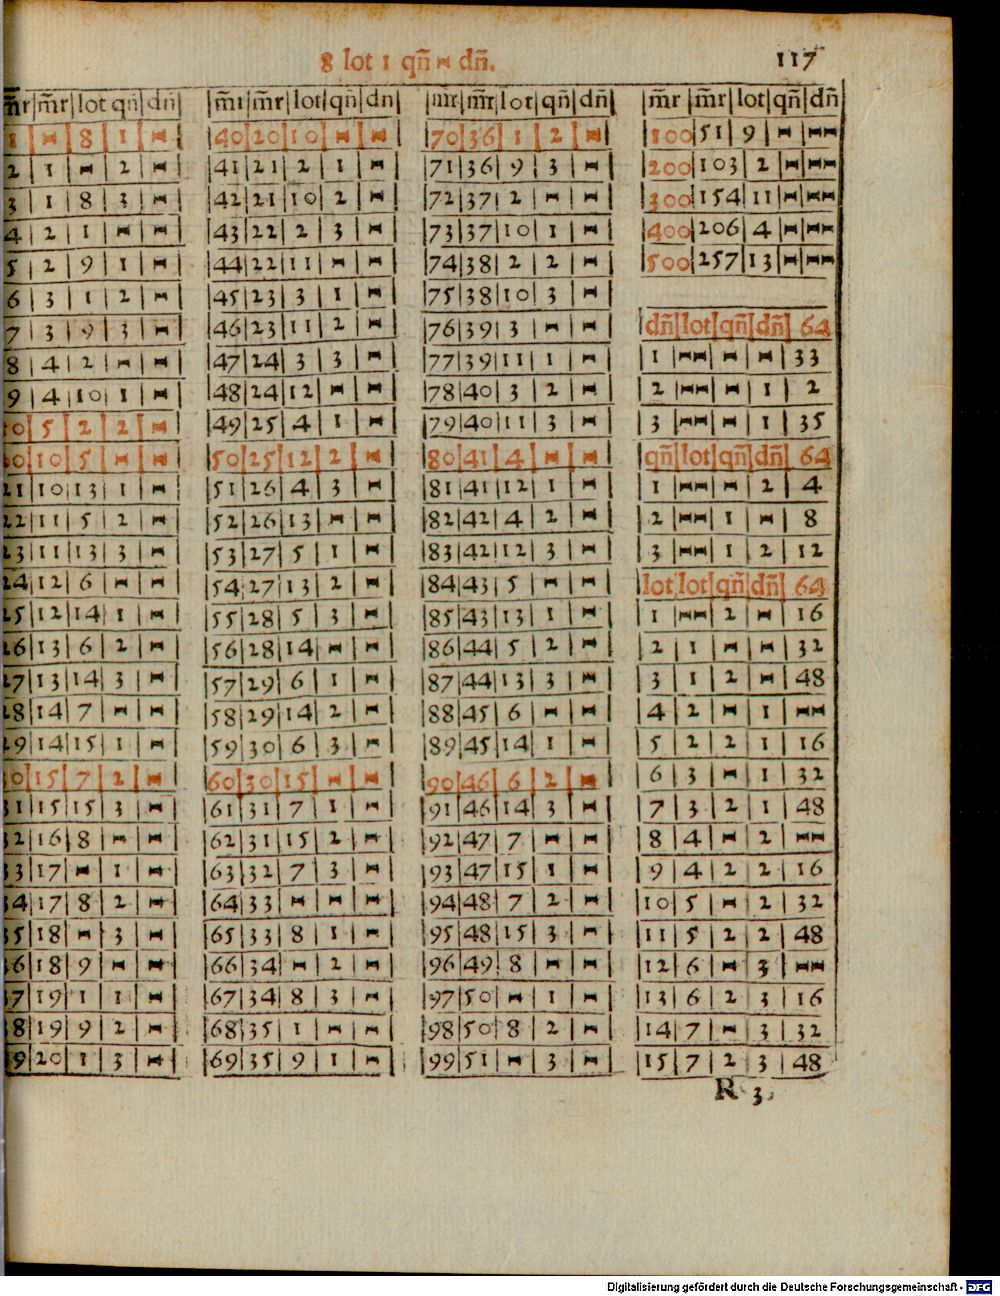 8 lot 1 qñ ⋈ dñ.
117
m̃r | m̃r | lot | qñ | dñ
1 | ⋈ | 8 | 1 | ⋈
2 | 1 | ⋈ | 2 | ⋈
3 | 1 | 8 | 3 | ⋈
4 | 2 | 1 | ⋈ | ⋈
5 | 2 | 9 | 1 | ⋈
6 | 3 | 1 | 2 | ⋈
7 | 3 | 9 | 3 | ⋈
8 | 4 | 2 | ⋈ | ⋈
9 | 4 | 10 | 1 | ⋈
10 | 5 | 2 | 2 | ⋈
20 | 10 | 5 | ⋈ | ⋈
21 | 10 | 13 | 1 | ⋈
22 | 11 | 5 | 2 | ⋈
23 | 11 | 13 | 3 | ⋈
24 | 12 | 6 | ⋈ | ⋈
25 | 12 | 14 | 1 | ⋈
26 | 13 | 6 | 2 | ⋈
27 | 13 | 14 | 3 | ⋈
28 | 14 | 7 | ⋈ | ⋈
29 | 14 | 15 | 1 | ⋈
30 | 15 | 7 | 2 | ⋈
31 | 15 | 15 | 3 | ⋈
32 | 16 | 8 | ⋈ | ⋈
33 | 17 | ⋈ | 1 | ⋈
34 | 17 | 8 | 2 | ⋈
35 | 18 | ⋈ | 3 | ⋈
36 | 18 | 9 | ⋈ | ⋈
37 | 19 | 1 | 1 | ⋈
38 | 19 | 9 | 2 | ⋈
39 | 20 | 1 | 3 | ⋈
m̃r | m̃r | lot | qñ | dn
40 | 20 | 10 | ⋈ | ⋈
41 | 21 | 2 | 1 | ⋈
42 | 21 | 10 | 2 | ⋈
43 | 22 | 2 | 3 | ⋈
44 | 22 | 11 | ⋈ | ⋈
45 | 23 | 3 | 1 | ⋈
46 | 23 | 11 | 2 | ⋈
47 | 24 | 3 | 3 | ⋈
48 | 24 | 12 | ⋈ | ⋈
49 | 25 | 4 | 1 | ⋈
50 | 25 | 12 | 2 | ⋈
51 | 26 | 4 | 3 | ⋈
52 | 26 | 13 | ⋈ | ⋈
53 | 27 | 5 | 1 | ⋈
54 | 27 | 13 | 2 | ⋈
55 | 28 | 5 | 3 | ⋈
56 | 28 | 14 | ⋈ | ⋈
57 | 29 | 6 | 1 | ⋈
58 | 29 | 14 | 2 | ⋈
59 | 30 | 6 | 3 | ⋈
60 | 30 | 15 | ⋈ | ⋈
61 | 31 | 7 | 1 | ⋈
62 | 31 | 15 | 2 | ⋈
63 | 32 | 7 | 3 | ⋈
64 | 33 | ⋈ | ⋈ | ⋈
65 | 33 | 8 | 1 | ⋈
66 | 34 | ⋈ | 2 | ⋈
67 | 34 | 8 | 3 | ⋈
68 | 35 | 1 | ⋈ | ⋈
69 | 35 | 9 | 1 | ⋈
m̃r | m̃r | lot | qñ | dñ
70 | 36 | 1 | 2 | ⋈
71 | 36 | 9 | 3 | ⋈
72 | 37 | 2 | ⋈ | ⋈
73 | 37 | 10 | 1 | ⋈
74 | 38 | 2 | 2 | ⋈
75 | 38 | 10 | 3 | ⋈
76 | 39 | 3 | ⋈ | ⋈
77 | 39 | 11 | 1 | ⋈
78 | 40 | 3 | 2 | ⋈
79 | 40 | 11 | 3 | ⋈
80 | 41 | 4 | ⋈ | ⋈
81 | 41 | 12 | 1 | ⋈
82 | 42 | 4 | 2 | ⋈
83 | 42 | 12 | 3 | ⋈
84 | 43 | 5 | ⋈ | ⋈
85 | 43 | 13 | 1 | ⋈
86 | 44 | 5 | 2 | ⋈
87 | 44 | 13 | 3 | ⋈
88 | 45 | 6 | ⋈ | ⋈
89 | 45 | 14 | 1 | ⋈
90 | 46 | 6 | 2 | ⋈
91 | 46 | 14 | 3 | ⋈
92 | 47 | 7 | ⋈ | ⋈
93 | 47 | 15 | 1 | ⋈
94 | 48 | 7 | 2 | ⋈
95 | 48 | 15 | 3 | ⋈
96 | 49 | 8 | ⋈ | ⋈
97 | 50 | ⋈ | 1 | ⋈
98 | 50 | 8 | 2 | ⋈
99 | 51 | ⋈ | 3 | ⋈
m̃r | m̃r | lot | qñ | dñ
100 | 51 | 9 | ⋈ | ⋈⋈
200 | 103 | 2 | ⋈ | ⋈⋈
300 | 154 | 11 | ⋈ | ⋈⋈
400 | 206 | 4 | ⋈ | ⋈⋈
500 | 257 | 13 | ⋈ | ⋈⋈
dñ | lot | qñ | dñ | 64
1 | ⋈⋈ | ⋈ | ⋈ | 33
2 | ⋈⋈ | ⋈ | 1 | 2
3 | ⋈⋈ | ⋈ | 1 | 35
qñ | lot | qñ | dñ | 64
1 | ⋈⋈ | ⋈ | 2 | 4
2 | ⋈⋈ | 1 | ⋈ | 8
3 | ⋈⋈ | 1 | 2 | 12
lot | lot | qñ | dñ | 64
1 | ⋈⋈ | 2 | ⋈ | 16
2 | 1 | ⋈ | ⋈ | 32
3 | 1 | 2 | ⋈ | 48
4 | 2 | ⋈ | 1 | ⋈⋈
5 | 2 | 2 | 1 | 16
6 | 3 | ⋈ | 1 | 32
7 | 3 | 2 | 1 | 48
8 | 4 | ⋈ | 2 | ⋈⋈
9 | 4 | 2 | 2 | 16
10 | 5 | ⋈ | 2 | 32
11 | 5 | 2 | 2 | 48
12 | 6 | ⋈ | 3 | ⋈⋈
13 | 6 | 2 | 3 | 16
14 | 7 | ⋈ | 3 | 32
15 | 7 | 2 | 3 | 48
R 3
Digitalisierung gefördert durch die Deutsche Forschungsgemeinschaft - DFG